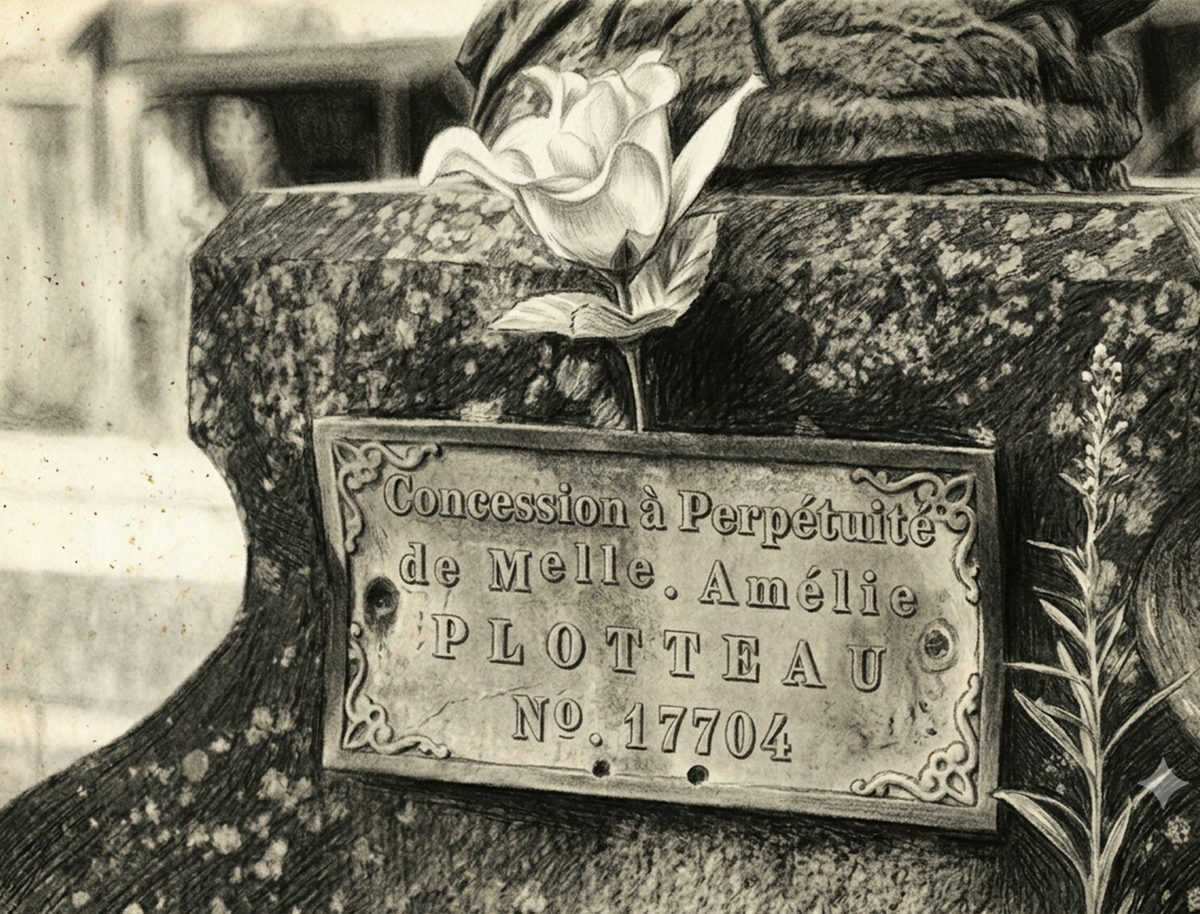 Concession à Perpétuité
de Melle. Amélie
PLOTTEAU
Nº. 17704